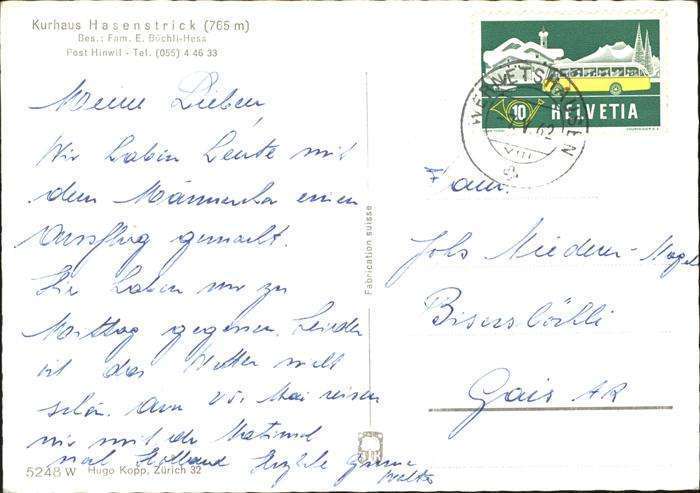 Kurhaus Hasenstrick (765 m)
Bes.: Fam. E. Büchli-Hess
Post Hinwil - Tel. (055) 4 46 33
Meine Lieben,
Wir haben heute mit
dem Männerchor einen
Ausflug gemacht.
Hier haben wir zu
Mittag gegessen. Leider
ist das Wetter nicht
schön. Am 25. Mai reisen
wir mit der
nach Holland Herzliche Grüsse
Walter
5248 W Hugo Kopp, Zürich 32
Fabrication suisse
WERNETSHAUSEN
62
10 HELVETIA
COURVOISIER S.A.
Fam.
Jobs Niederer-
Gais AR